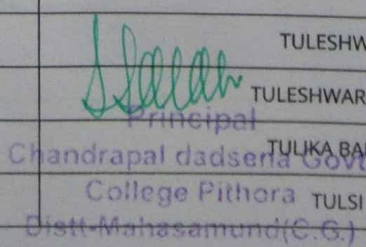 TULESHW
TULESHWAR
Principal
TULIKA BA
Chandrapal dadsena Govt
College Pithora
TULSI
Distt-Mahasamund(C.G.)